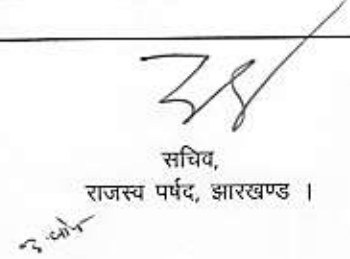 सचिव,
राजस्व पर्षद, झारखण्ड ।